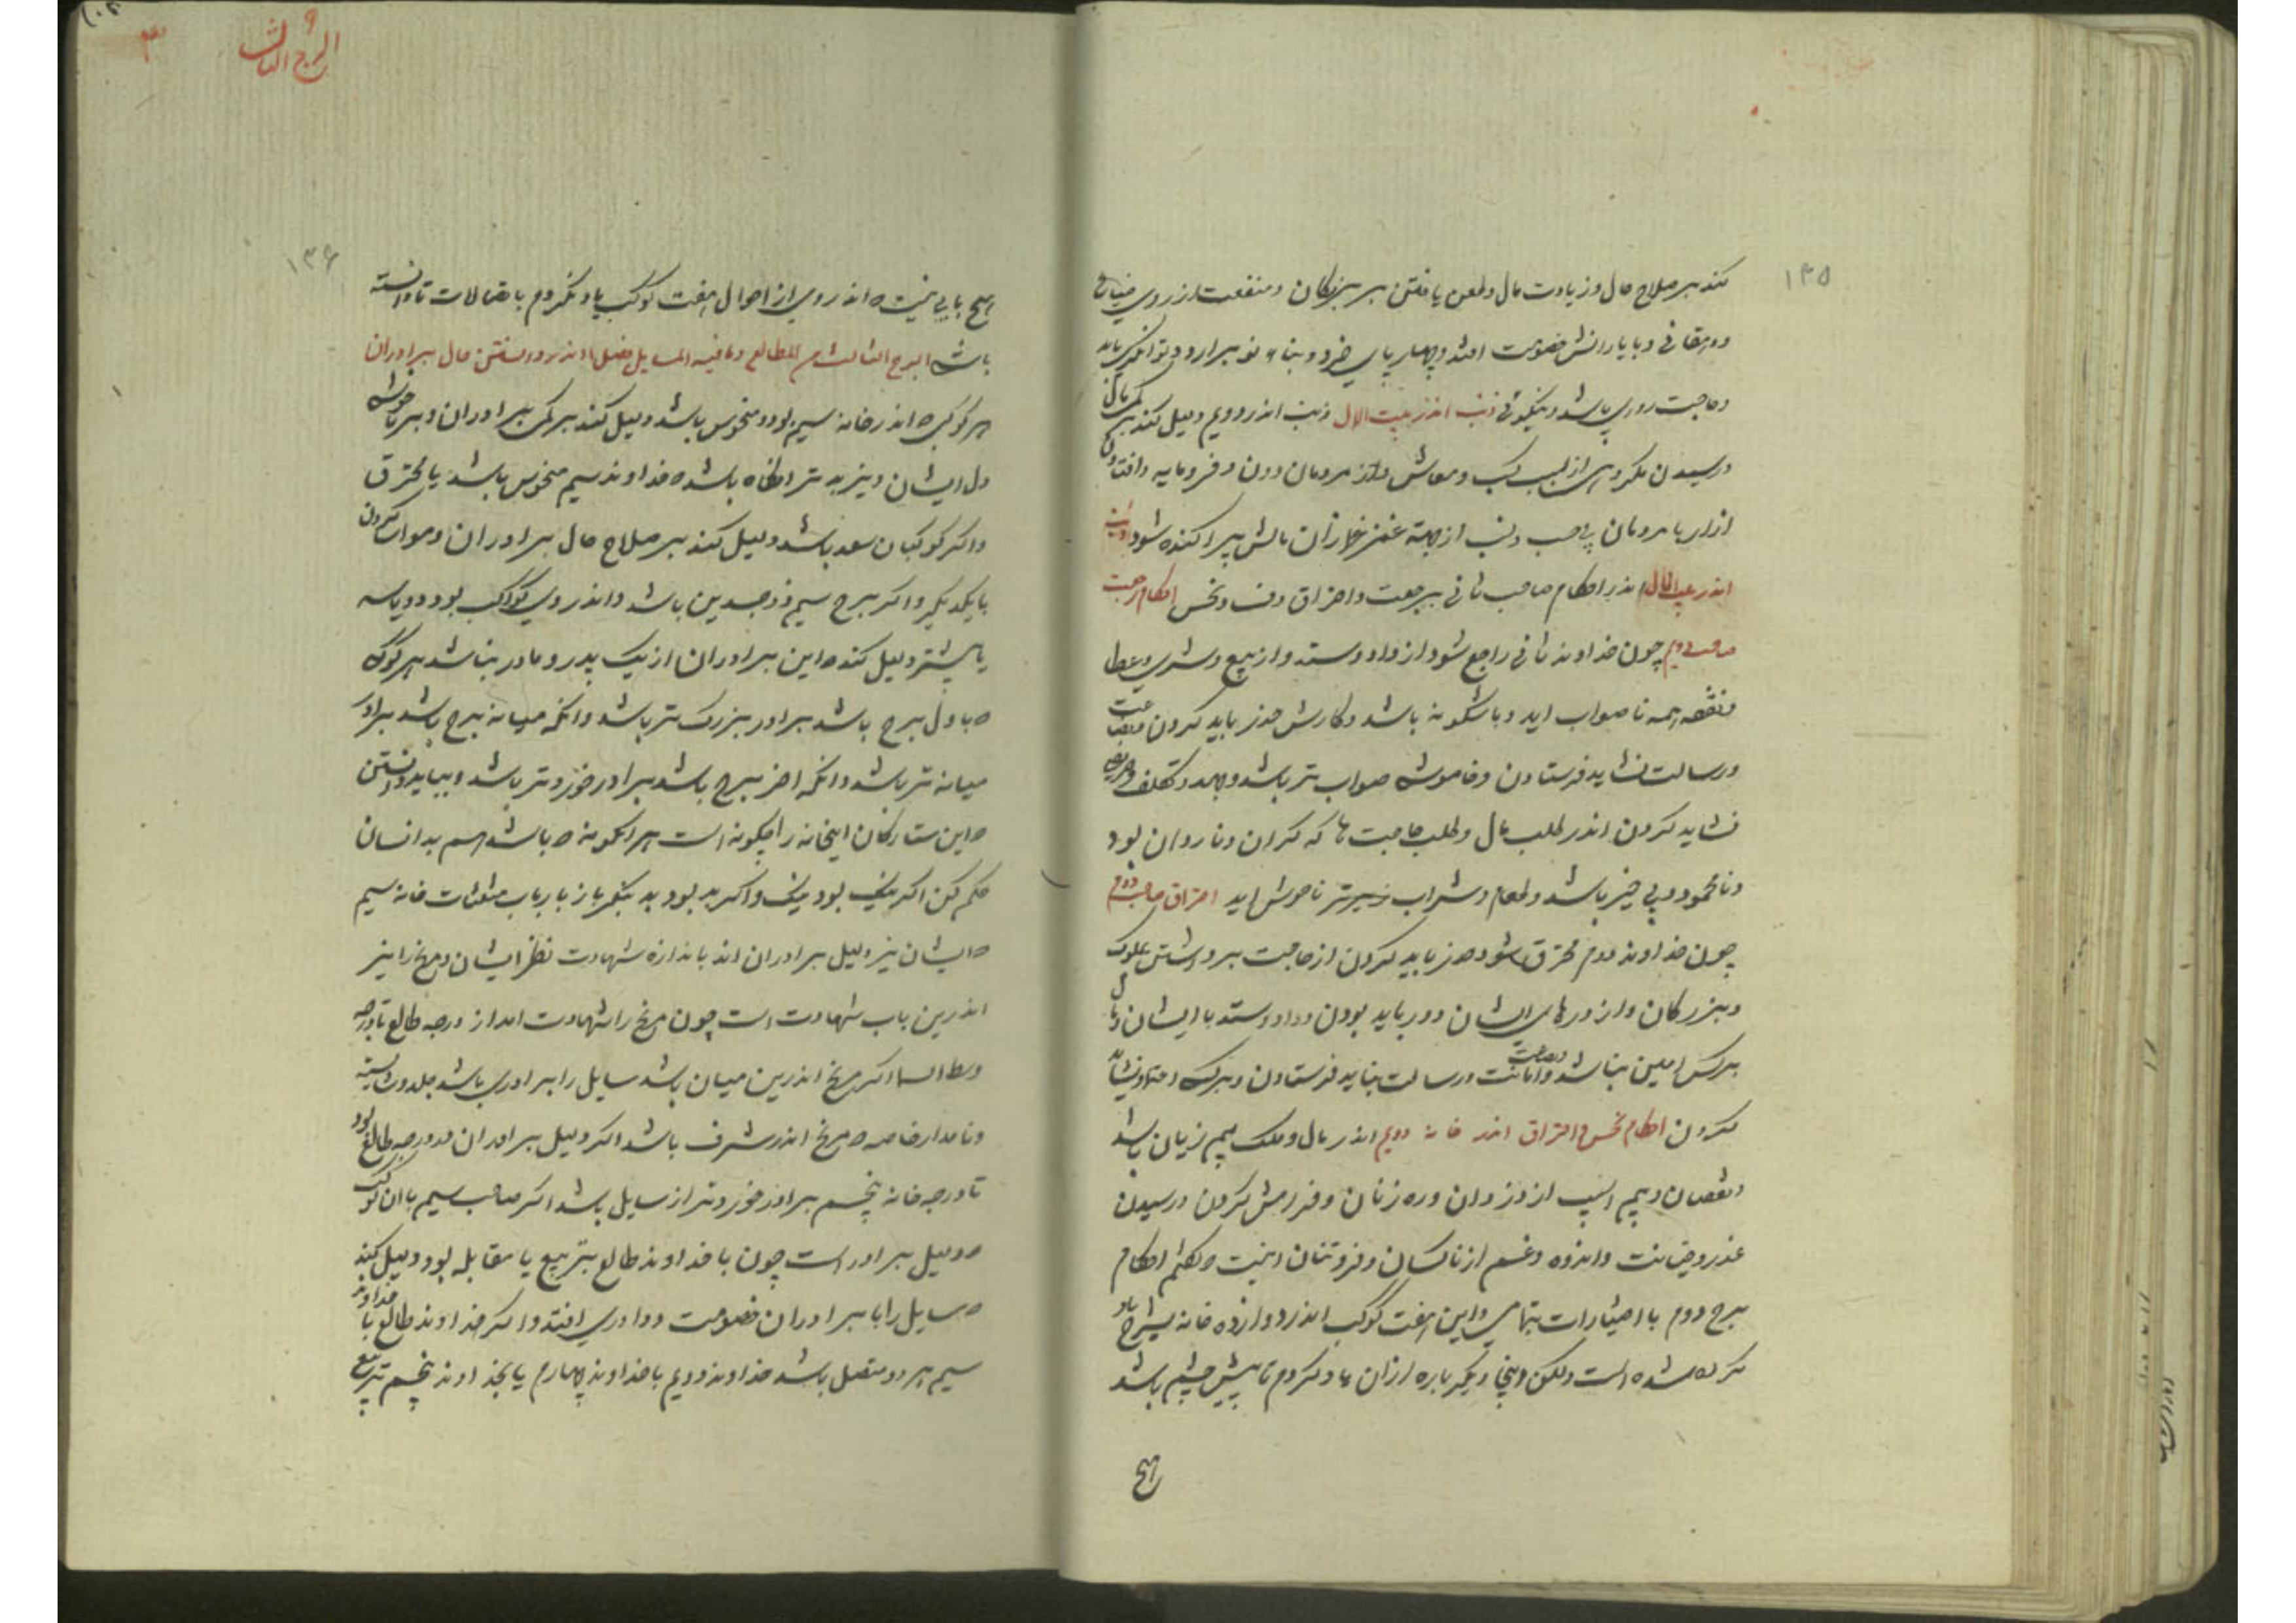 ۱۳۵
کند بر صلاح حال و زیادت مال و یافتن بر بزرگان و منفعت از روی ضیاع
و دهقانی و با یارانش خصومت افتد و چهار پای خرد و بناء نو برارد و توانگری یابد
و حاجت روای باشد و نیکوئی ذنب اندر بیت المال ذنب اندر دویم دلیل کند بر کمی مال
و رسیدن مکروهی از سبب کسب و معاش و از مردمان دون و فرومایه
ازار یا مردمان بی حسب و نسب از جهة مالش پراکنده شود
اندر بیت المال اندر احکام صاحب ثانی برجعت و احتراق و نحس احکام رجعت
صاحب دویم چون خداوند ثانی راجع شود از داد و ستد و از بیع و شری و عطا
و نفقه همه ناصواب اید و باشگونه باشد و کارش حذر باید کردن
و رسالت نشاید فرستادن و خاموشی صواب تر باشد و جهد و تکلف
نشاید کردن اندر طلب مال و طلب حاجت ها که گران و ناروان بود
و نامحمود و بی خیر باشد و طعام و شراب ناخوش اید احتراق صاحب دوم
چون خداوند دوم محترق شود حذر باید کردن از حاجت برداشتن ملوک
و بزرگان و از درهای ایشان دور باید بودن و داد و ستد با ایشان
بر کس امین نباشد و امانت و رسالت نباید فرستادن و بر کس اعتماد نشاید
کردن احکام نحس و احتراق اندر خانه دویم اندر مال و ملک بیم زیان باشد
و نقصان و بیم اسیب از دزدان و ره زنان و فرامش کردن و رسیدن
غدر و خیانت و اندوه و غم از ناکسان و فروتنان اینست احکام
برج دوم با اختیارات بتمامی و این هفت کوکب اندر دوازده خانه بشرح یاد
کرده شده است ولکن اینجا دیگر باره ازان یاد کردم تا پیش چشم باشد
هیچ
البرج الثالث
۳
۱۳۶
هیچ بابی نیست اندر وی از احوال هفت کوکب یاد نکردم باتصالات تا دانسته
باشد البرج الثالث من الطالع و ما فیه المسایل فصل اندر دانستن حال برادران
هر کوکبی اندر خانه سیم بود و منحوس باشد دلیل کند بر کمی برادران و بر ناخوشی
دل ایشان و نیز بدتر انگاه باشد خداوند سیم منحوس باشد یا محترق
و اگر کوکبان سعد باشد دلیل کند بر صلاح حال برادران و مواسا کردن
با یکدیگر و اگر برج سیم ذو جسدین باشد و اندر وی کواکب بود دو یا سه
یا بیشتر دلیل کند این برادران از یک پدر و مادر نباشد هر کوکب
باول برج باشد برادر بزرگ تر باشد و انکه میانه برج باشد برادر
میانه تر باشد و انکه اخر برج باشد برادر خوردتر باشد و بباید دانستن
این ستارگان اینخانه را چگونه است هر انگونه باشد هم بدانسان
حکم کن اگر نیک بود نیک و اگر بد بود بد بنگر باز بارباب مثلثات خانه سیم
ایشان نیز دلیل برادران اند باندازه شهادت نظر ایشان و مریخ را نیز
اندرین باب شهادت است چون مریخ را شهادت امد از درجه طالع تا درجه
وسط السما اگر مریخ اندرین میان باشد سایل را برادری باشد جلد و شایسته
و نامدار خاصه مریخ اندر شرف باشد اگر دلیل برادران در درجه طالع بود
تا درجه خانه پنجم برادر خوردتر از سایل باشد اگر صاحب سیم با ان کوکب
دلیل برادر است چون با خداوند طالع بتربیع یا مقابله بود دلیل کند
سایل را با برادران خصومت و داوری افتد و اگر خداوند طالع با خداوند
سیم هر دو متصل باشد خداوند دویم با خداوند چهارم یا بخداوند پنجم بتربیع